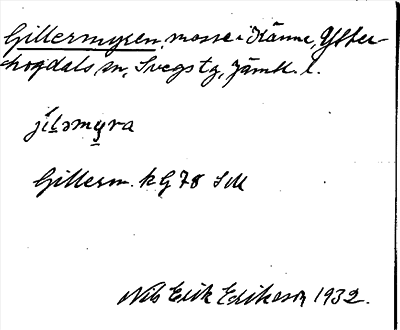 Gillermyren, mosse i Känne, Ytter-
hogdals sn, Svegs tg, Jämtl. l.
jíləmyra
Gillerm. kG 78 SM
Nils Erik Erikson 1932.